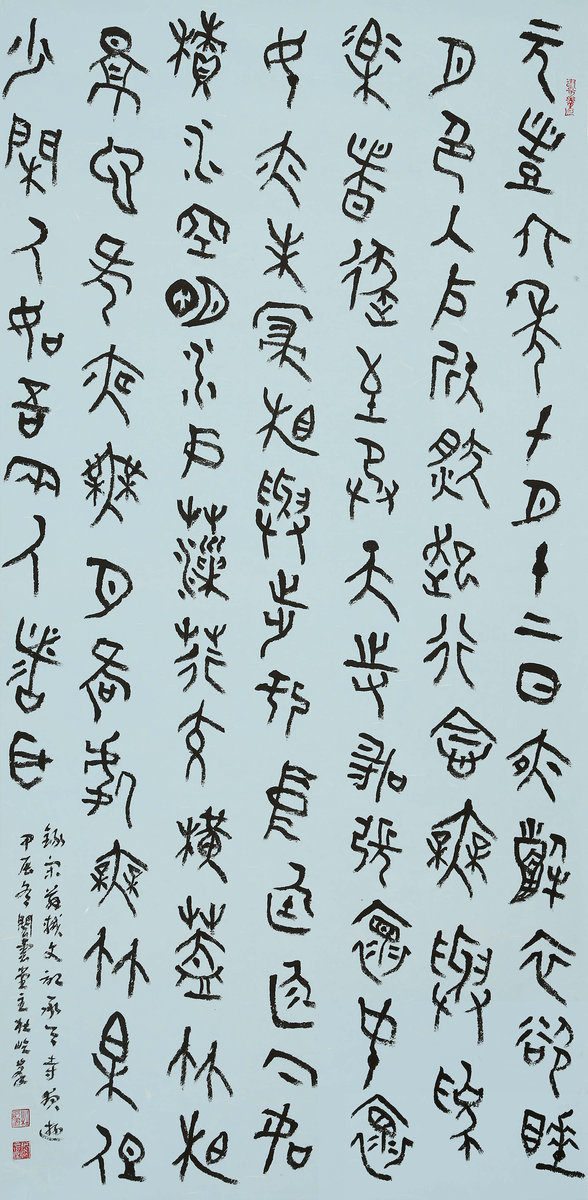 元豐六年十月十二日夜解衣欲睡
月色入戶欣然起行念無與為
樂者遂至承天寺尋張懷民懷
民亦未寢相與步于中庭庭下如
積水空明水中藻荇交橫蓋竹柏
景也何夜無月何處無竹柏但
少閑人如吾兩人者耳
錄宋蘇軾文記承天寺夜遊
甲辰冬閒雲堂主杜書